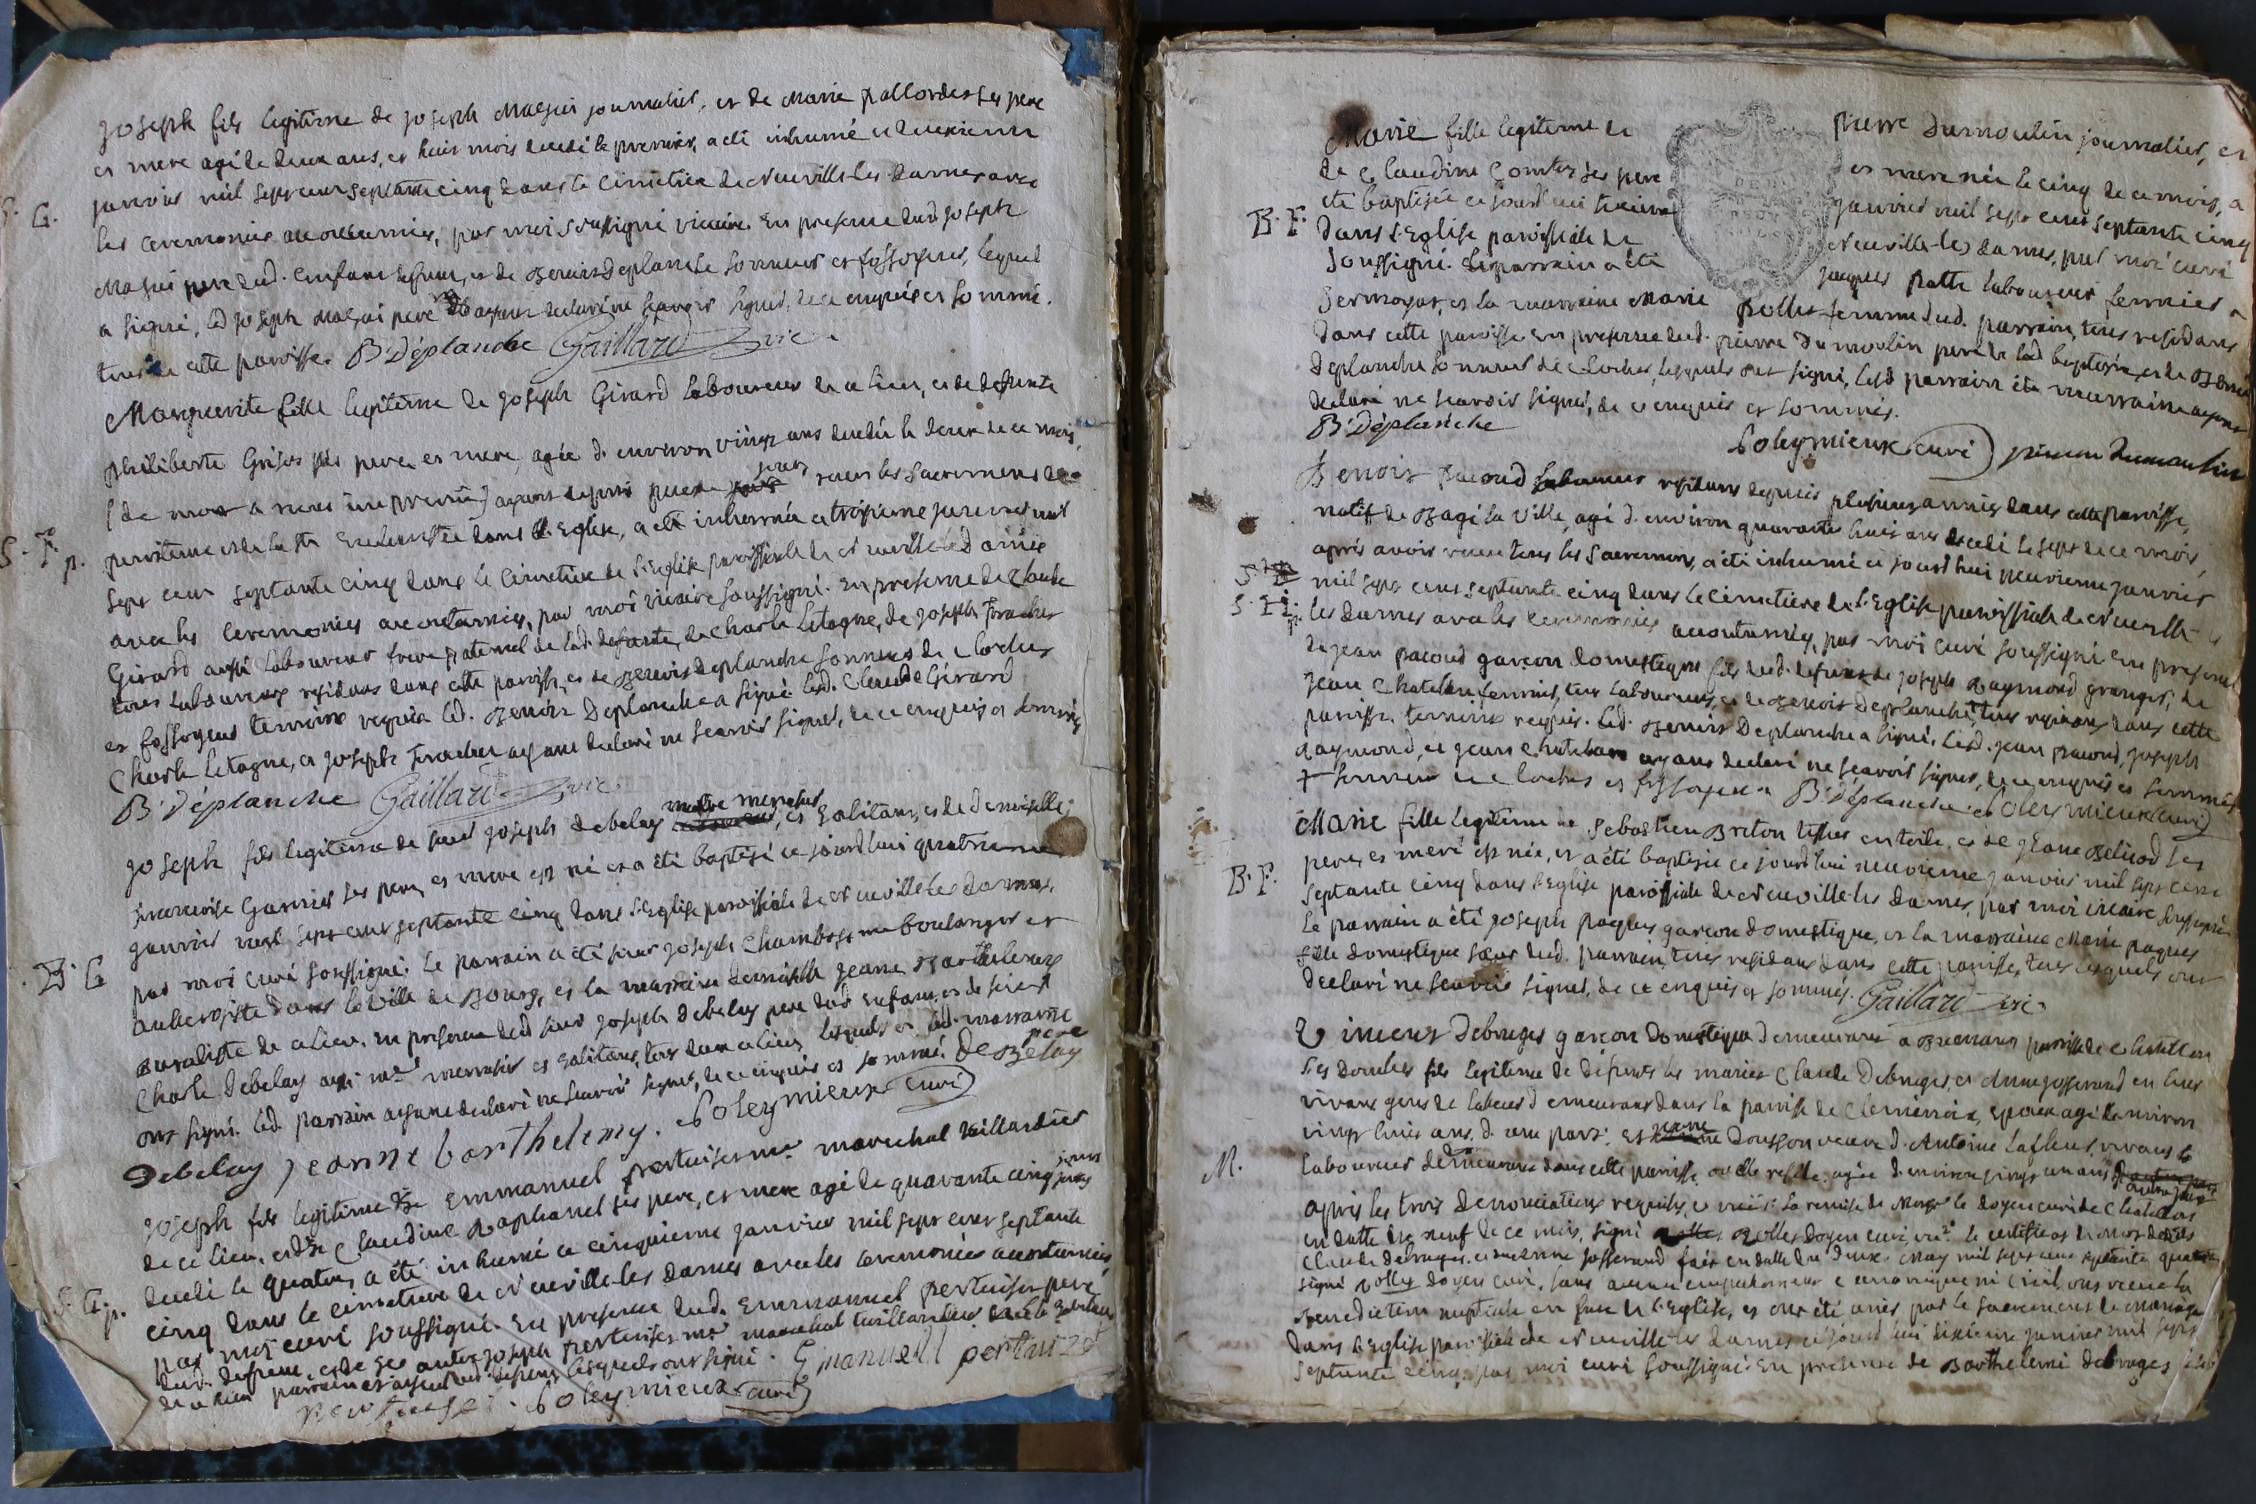 Joseph fils legitime de Joseph Maçui journalier, et de Marie pallordet ses pere
et mere agé de deux ans, et huit mois decedé le premier, a eté inhumé ce deuxieme
janvier mil sept cent septante cinq dans le cimetiere de Neuville les dames avec
S. G.
les ceremonies accoutumées, par moi soussigné vicaire. En presence dud. joseph
Maçui pere dud. enfant defunt, et de Benoit Deplanche sonneur et fossoyeur, lequel
a signé, led joseph Maçui pere ayant declaré ne sçavoir signer, de ce enquis et sommé.
tous de cette paroisse. B. Déplanche Gaillard vic.
Marguerite fille legitime de joseph Girard laboureur de ce lieu, et de defunte
philiberte ses pere et mere, agée d. environ vingt ans decedée le deux de ce mois,
ayant depuis peu de jours reçu les sacremens de
S. F. p.
penitence et de la Ste Eucharistie dans l'Eglise, a eté inhumée ce troisieme janvier mil
sept cent septante cinq dans le cimetiere de l'Eglise paroissiale de Neuville les Dames
avec les ceremonies accoutumées, par moi vicaire soussigné. En presence de Claude
Girard aussi laboureur frere paternel de lad. defunte, de Charle Letagne, de joseph
tous laboureurs residans dans cette paroisse, et de Benoit Deplanche sonneur de cloches
et fossoyeur temoins requis led. Benoit Deplanche a signé lesd. Claude Girard
Charle Letagne, et joseph ayant declaré ne sçavoir signer, de ce enquis et sommés
B. Déplanche Gaillard vic.
joseph fils legitime de sieur joseph Debelay maitre menusier, et habitant, et de demoiselle
francoise Garnier ses pere et mere est né et a eté baptisé ce jourd'hui quatrieme
janvier mil sept cent septante cinq dans l'Eglise paroissiale de Neuville les dames,
B. G
par moi curé soussigné. Le parrain a eté sieur joseph Chambost me boulanger et
aubergiste dans la ville de Bourg, et la marraine demoiselle jeanne Barthelemy
buraliste de ce lieu. En presence dud. sieur joseph Debelay pere dud. enfant, et de sieur
Charle Debelay aussi me menusier et habitant, tous deux de ce lieu, lesquels et lad. marraine
ont signé. led. parrain ayant declaré ne sçavoir signer, de ce enquis et sommé. De Belay pere
Debelay jeanne barthelemy. Poleymieux curé
joseph fils legitime de Emmanuel pertuiset me marechal taillandier
de ce lieu, et de Claudine Raphanel ses pere, et mere agé de quarante cinq jours
decedé le quatre, a eté inhumé ce cinquieme janvier mil sept cent septante
S. G. p.
cinq dans le cimetiere de Neuville les dames avec les ceremonies accoutumées,
par moi curé soussigné. En presence dud. Emmanuel pertuiset pere
dud. defunt, et de sr autre joseph pertuiset me marechal taillandier
de ce lieu parrain et ayeul dud. defunt, lesquels ont signé. Emanuell pertuizet
pertuiset. Poleymieux curé
Marie fille legitime de pierre Dumoulin journalier, et
de Claudine Comtet ses pere et mere née le cinq de ce mois, a
eté baptisée ce jourd'hui sixieme janvier mil sept cent septante cinq
B. F.
dans l'Eglise paroissiale de Neuville-les dames, par moi curé
soussigné. Le parrain a eté jacques patte laboureur fermier a
Sermoyer, et la marraine Marie femme dud. parrain, tous residans
dans cette paroisse. En presence dud. pierre Dumoulin pere de lad baptisée, et de Benoit
Deplanche sonneur de cloches, lesquels ont signé, lesd parrain et marraine ayant
declaré ne sçavoir signer, de ce enquis et sommés.
B. Déplanche
Poleymieux curé pierre Dumoulin
Benoit pacoud laboureur residant depuis plusieurs années dans cette paroisse,
natif de Bagé la ville, agé d. environ quarante huit ans decedé le sept de ce mois,
après avoir reçu tous les sacremens, a eté inhumé ce jourd'hui neuvieme janvier
mil sept cent septante cinq dans le cimetiere de l'Eglise paroissiale de Neuville
les dames avec les ceremonies accoutumées, par moi curé soussigné. En presence
de jean pacoud garçon domestique fils dud. defunt de joseph Raymond granger, de
jean Chatelan fermier, tous laboureurs, et de Benoit Deplanche, tous residans dans cette
paroisse. temoins requis. led. Benoit Deplanche a signé, lesd. jean pacoud, joseph
Raymond, et jean Chatelan ayant declaré ne sçavoir signer, de ce enquis et sommés
+ sonneur de cloches et fossoyeur. B. Déplanche. Poleymieux curé
Marie fille legitime de Sebastien Breton tissier en toile, et de jeane ses
pere, et mere est née, et a été baptisée ce jourd'hui neuvieme janvier mil sept cent
B. F.
septante cinq dans l'Eglise paroissiale de Neuville les dames, par moi vicaire soussigné.
Le parrain a été joseph paques garçon domestique, et la marraine Marie paques
fille domestique sœur dud. parrain, tous residans dans cette paroisse, tous lesquels ont
declaré ne sçavoir signer, de ce enquis et sommés. Gaillard vic.
Vincent Debroges garçon domestique demeurant a paroisse de Chatillon
les Dombes fils legitime de defunts les mariés Claude Debroges, et Anne josserand en leur
vivant gens de labeur demeurans dans la paroisse de agé d environ
vingt huit ans, d. une part; et jeanne veuve d. Antoine Lafleur, vivant
M.
laboureur demeurant dans cette paroisse, ou elle reside, agée d. environ vingt un ans d'autre part
après les trois denonciations requises, la remise de Mesre le doyen curé de Chatillon
en datte du neuf de ce mois, signé Rolles doyen curé, le certificat de mort desdits
Claude debroges, et Anne josserand fait en datte du deux May mil sept cent septante quatre
signé Rolles doyen curé, sans aucun empechement canonique ni civil, ont reçu la
Benediction nuptiale en face de l'Eglise, et ont été unis par le sacrement de Mariage
dans l'Eglise paroissiale de Neuville les dames ce jourd'hui dixieme janvier mil sept
septante cinq, par moi curé soussigné. En presence de Barthelemi debroges